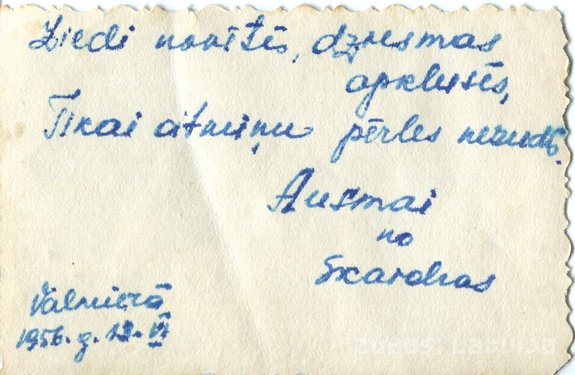 Ziedi novītīs, dziesmas
apklusīs,
Tikai atmiņu pērles nezudīs.
Ausmai
no
Skaidras
Valmierā
1956. g. 12. VI